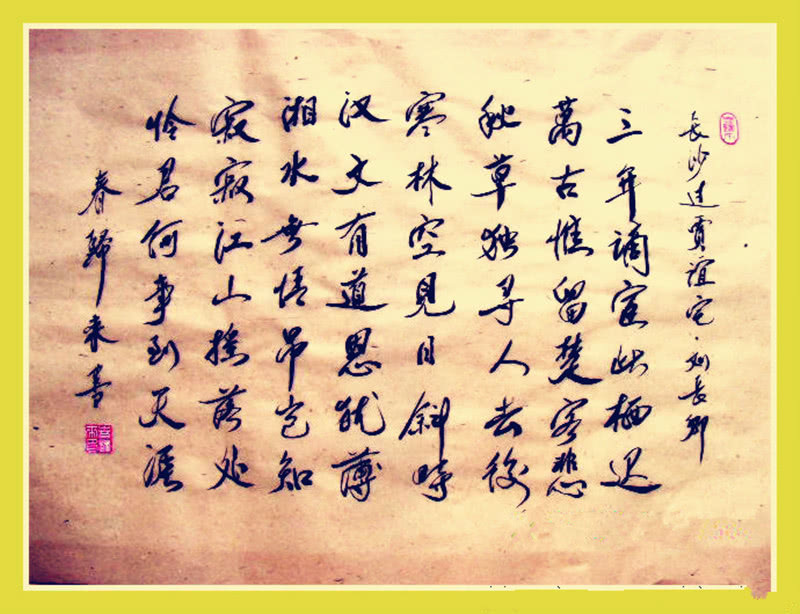 長沙过賈誼宅·刘長卿
三年謫宦此栖迟
萬古惟留楚客悲
秋草独寻人去後
寒林空見日斜時
汉文有道恩犹薄
湘水无情吊岂知
寂寂江山摇落处
怜君何事到天涯
春歸来書